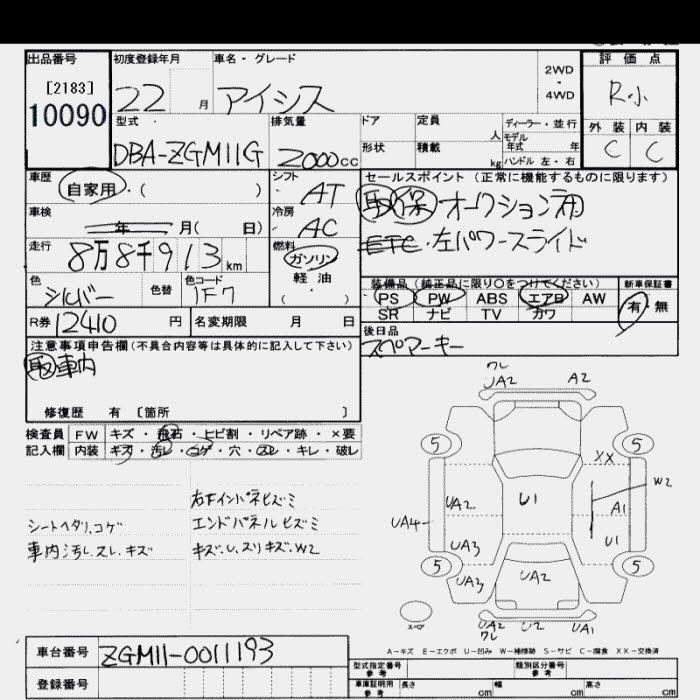 出品番号 初度登録年月 車名・グレード 評価点
[2183] 2WD
・
10090 22 月 アイシス 4WD R小
型式 排気量 ドア 定員 人 ディーラー・並行 外装 内装
モデル年式 年
DBA-ZGM11G 2000cc 形状 積載 kg ハンドル 左・右 C C
車歴 シフト セールスポイント(正常に機能するものに限ります)
自家用・( ) AT 取 保 オークション用
車検 冷房 ETC・左パワースライド
年 月( 日) AC
走行 燃料
8万8千913km ガソリン
色 色替 色コード 軽油 装備品(純正品に限り○をつけてください) 新車保証書
シルバー 1F7 ・( ) PS PW ABS エアロ AW 有・無
SR ナビ TV カワ
R券 12410 円 名変期限 月 日 後日品
スペアーキー
注意事項申告欄(不具合内容等は具体的に記入して下さい)
取車内
修復歴 有〔箇所 〕
検査員 FW キズ・飛石・ヒビ割・リペア跡・×要
記入欄 内装 キズ・汚レ・コゲ・穴・スレ・キレ・破レ
右下インパネヒズミ
シートヘタリ、コゲ エンドパネルヒズミ
車内汚レ、スレ、キズ キズ、U、スリキズ、W2
ワレ
UA2 A2
5 5
XX
W2
UA2 U1 A1
UA4
UA3 U1
5 5
UA3 UA2
スペア UA2 U2 UA1
ワレ
A-キズ E-エクボ U-凹み W-補修跡 S-サビ C-腐食 XX-交換済
車台番号 ZGM11-0011193
型式指定番号 参考 類別区分番号 参考
登録番号 車庫証明用 参考 長さ cm 幅 cm 高さ cm